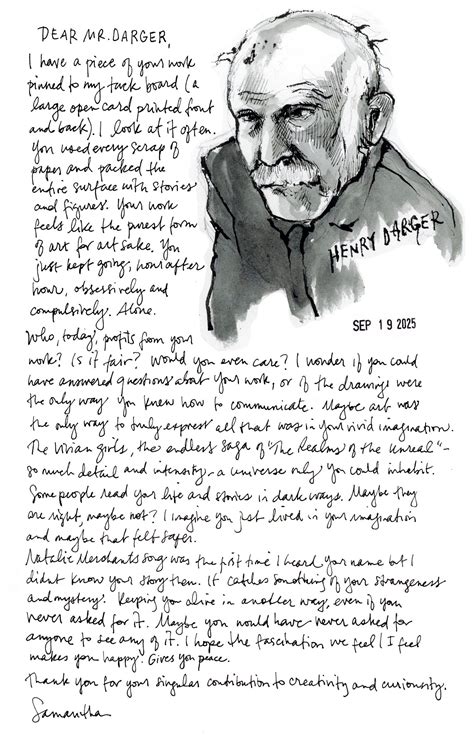 DEAR MR. DARGER,
I have a piece of your work
pinned to my tack board (a
large open card printed front
and back). I look at it often.
You used every scrap of
paper and packed the
entire surface with stories
and figures. Your work
feels like the purest form
of art for art sake. You
just kept going, hour after
hour, obsessively and
compulsively. Alone.
HENRY DARGER
SEP 19 2025
Who, today, profits from your
work? Is it fair? Would you even care? I wonder if you could
have answered questions about your work, or if the drawings were
the only way you knew how to communicate. Maybe art was
the only way to truly express all that was in your vivid imagination.
The Vivian girls, the endless saga of "The Realms of the Unreal" -
so much detail and intensity - a universe only you could inhabit.
Some people read your life and stories in dark ways. Maybe they
are right, maybe not? I imagine you just lived in your imagination
and maybe that felt safer.
Natalie Merchants song was the first time I heard your name but I
didn't know your story then. It catches something of your strangeness
and mystery. Keeping you alive in another way, even if you
never asked for it. Maybe you would have never asked for
anyone to see any of it. I hope the fascination we feel / I feel
makes you happy. Gives you peace.
Thank you for your singular contribution to creativity and curiousity.
Samantha